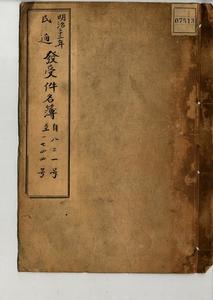 明治三十三年
民通 發受件名簿
自八二一号
至一七四四号
07513